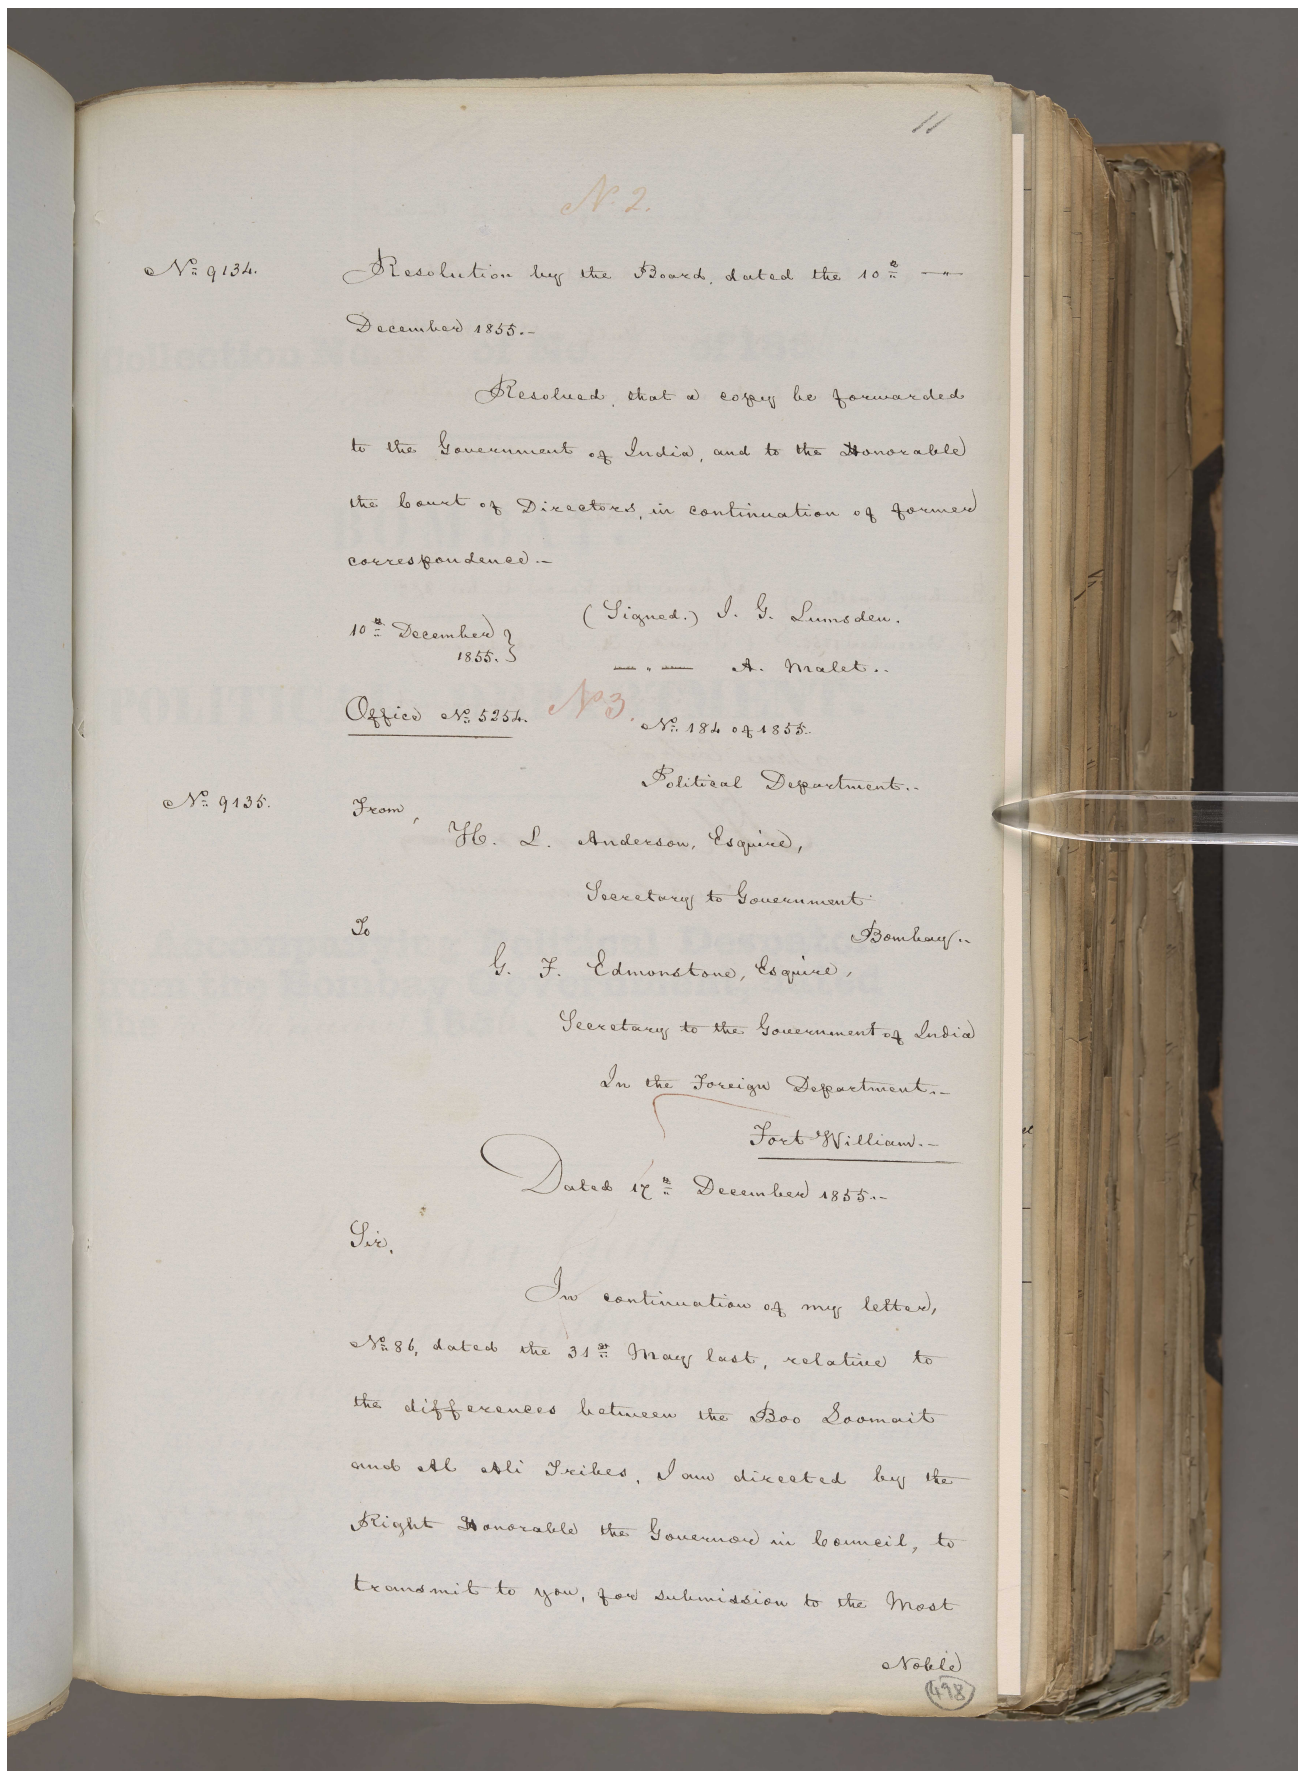 11
No. 2.
No. 9134. Resolution by the Board, dated the 10th — " —
December 1855.-
Resolved, that a copy be forwarded
to the Government of India, and to the Honorable
the Court of Directors, in continuation of former
correspondence.-
(Signed.) J. G. Lumsden.
10th December
1855. }
— " — A. Malet..
Office No. 5254.
No 3.
No. 184 of 1855.
Political Department.-
No. 9135. From,
H. L. Anderson, Esquire,
Secretary to Government
Bombay..
To
G. F. Edmonstone, Esquire,
Secretary to the Government of India
In the Foreign Department.-
Fort William.-
Dated 17th December 1855.-
Sir,
In continuation of my letter,
No. 86, dated the 31st May last, relative to
the differences between the Boo Soomait
and Al Ali Tribes, I am directed by the
Right Honorable the Governor in Council, to
transmit to you, for submission to the Most
Noble
498